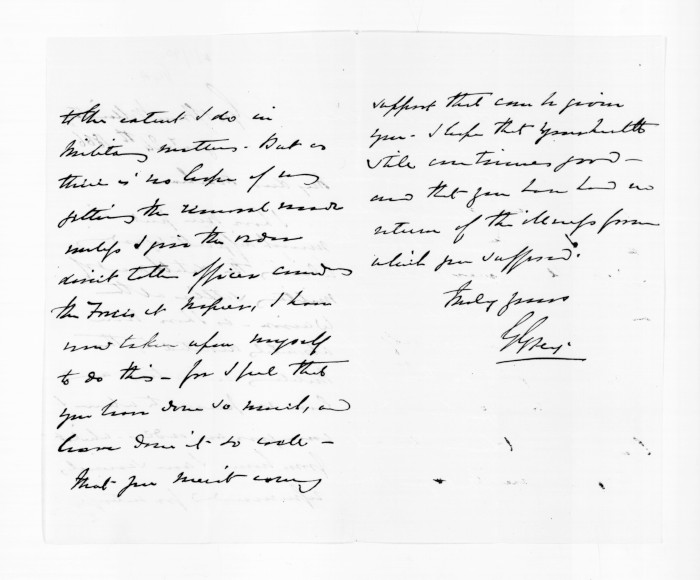 to the extent I do in
Military matters. But as
there is no hope of my
getting the removal made
unless I give the order
direct to the officer comdg
the Forces at Napier, I have
now taken upon myself
to do this – for I feel that
you have done so much, and
have done it so well –
that you merit every
support that can be given
you. I hope that your health
still continues good –
and that you have had no
return of the illness from
which you suffered.
truly yours
G Grey.